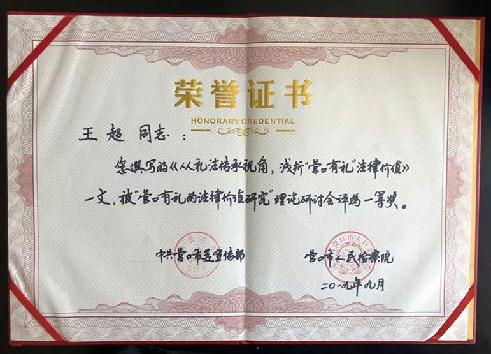 荣誉证书
HONORARY CREDENTIAL
王超 同志：
您撰写的《从礼法传承视角，浅析“营口有礼”法律价值》
一文，被“营口有礼的法律价值研究”理论研讨会评为一等奖。
中共营口市委宣传部 营口市人民检察院
二〇一九年九月